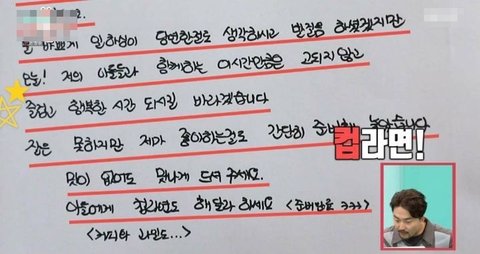 바쁘게 일하심이 당연한걸로 생각하시고 발걸음 하셨겠지만
오늘! 저의 아들들과 함께하는 이시간만큼은 고되지않고
즐겁고 행복한 시간 되시길 바라겠습니다
잘은 못하지만 제가 좋아하는걸로 간단히 준비해 놓았습니다
맛이 없어도 맛나게 드셔 주세요.
아들에게 컵라면도 해달라 하세요 <준비완료 ㅋㅋㅋ>
<커피와 과일도...>
컵라면!